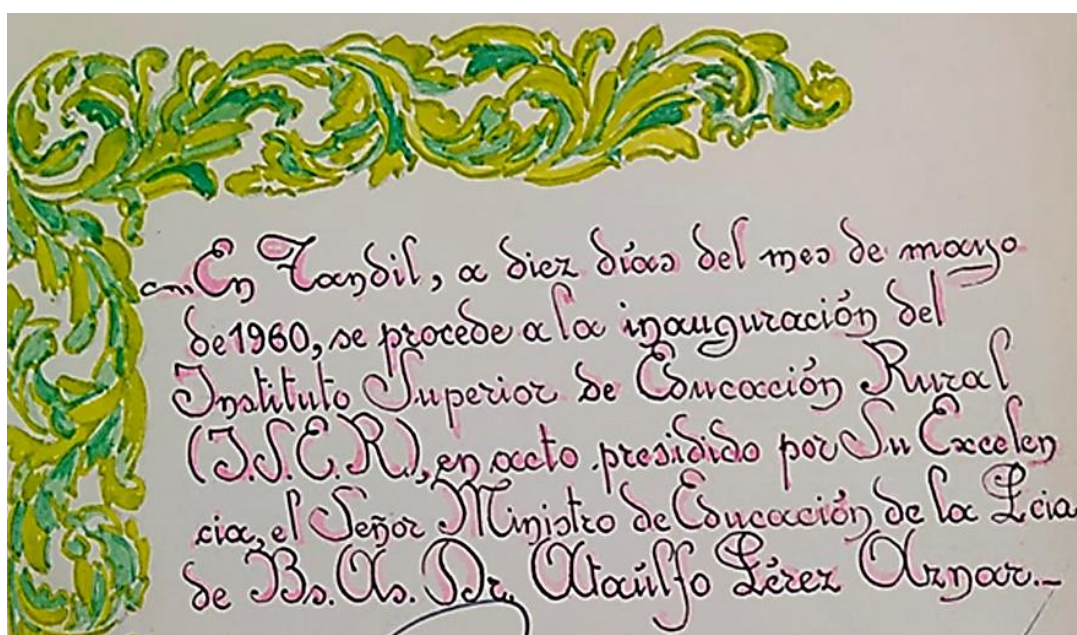 En Tandil, a diez días del mes de marzo
de 1960, se procede a la inauguración del
Instituto Superior de Educación Rural
(I.S.E.R.), en acto presidido por Su Excelen
cia, el Señor Ministro de Educación de la Pcia
de Bs. As. Dr. Ataúlfo Pérez Aznar.-